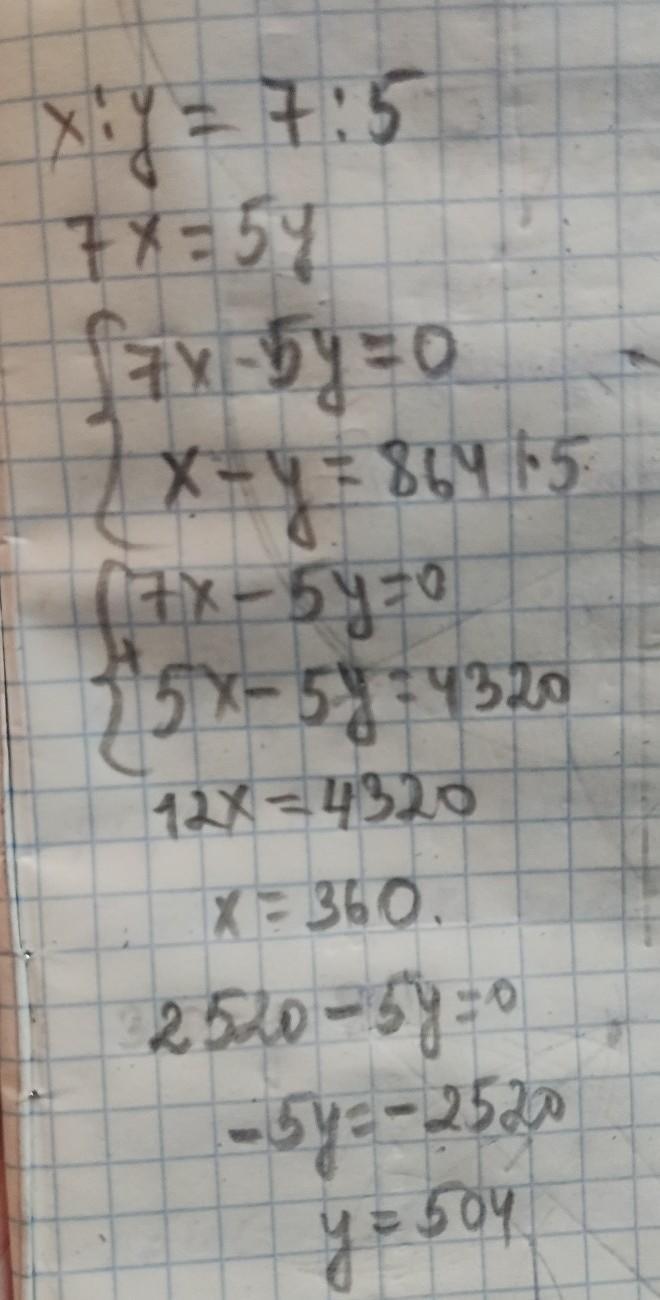 x:y = 7:5
7x = 5y
7x - 5y = 0
x - y = 864 |·5
7x - 5y = 0
+
5x - 5y = 4320
12x = 4320
x = 360.
2520 - 5y = 0
-5y = -2520
y = 504